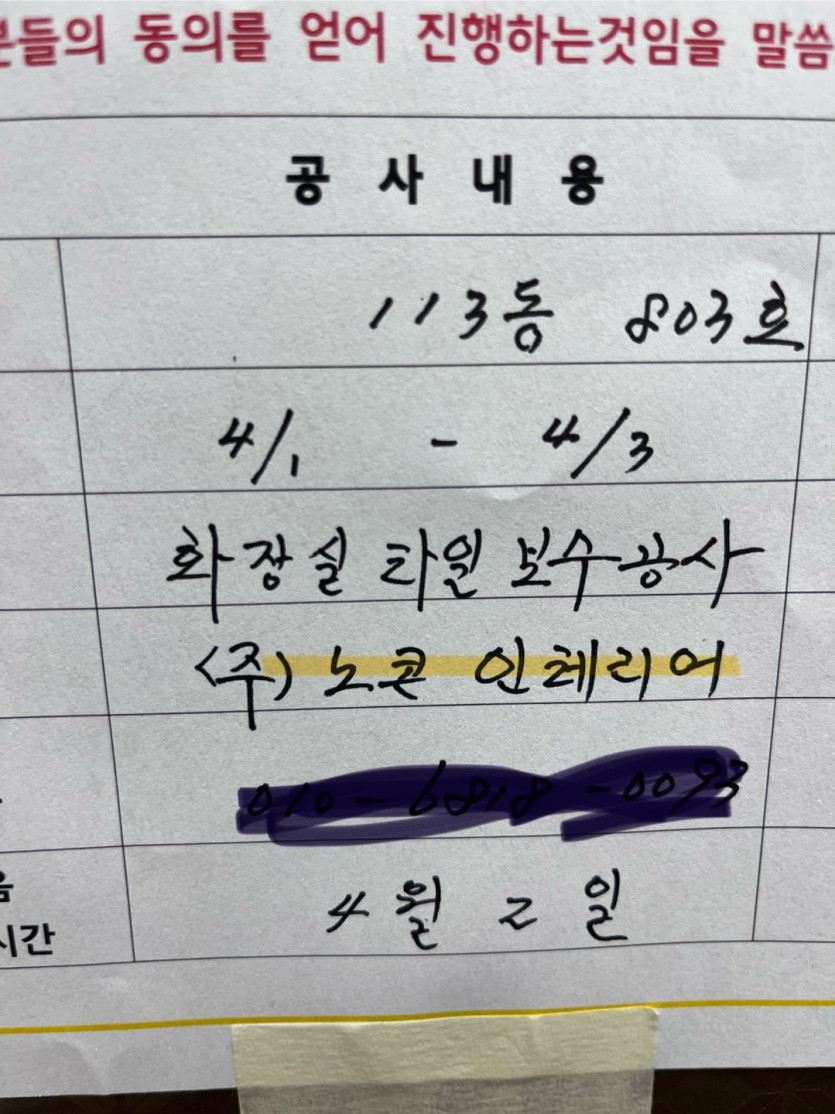 분들의 동의를 얻어 진행하는것임을 말씀
공 사 내 용
113동 803호
4/1 - 4/3
화장실 타일 보수공사
(주) 노콘 인테리어
음
4월 2일
시간